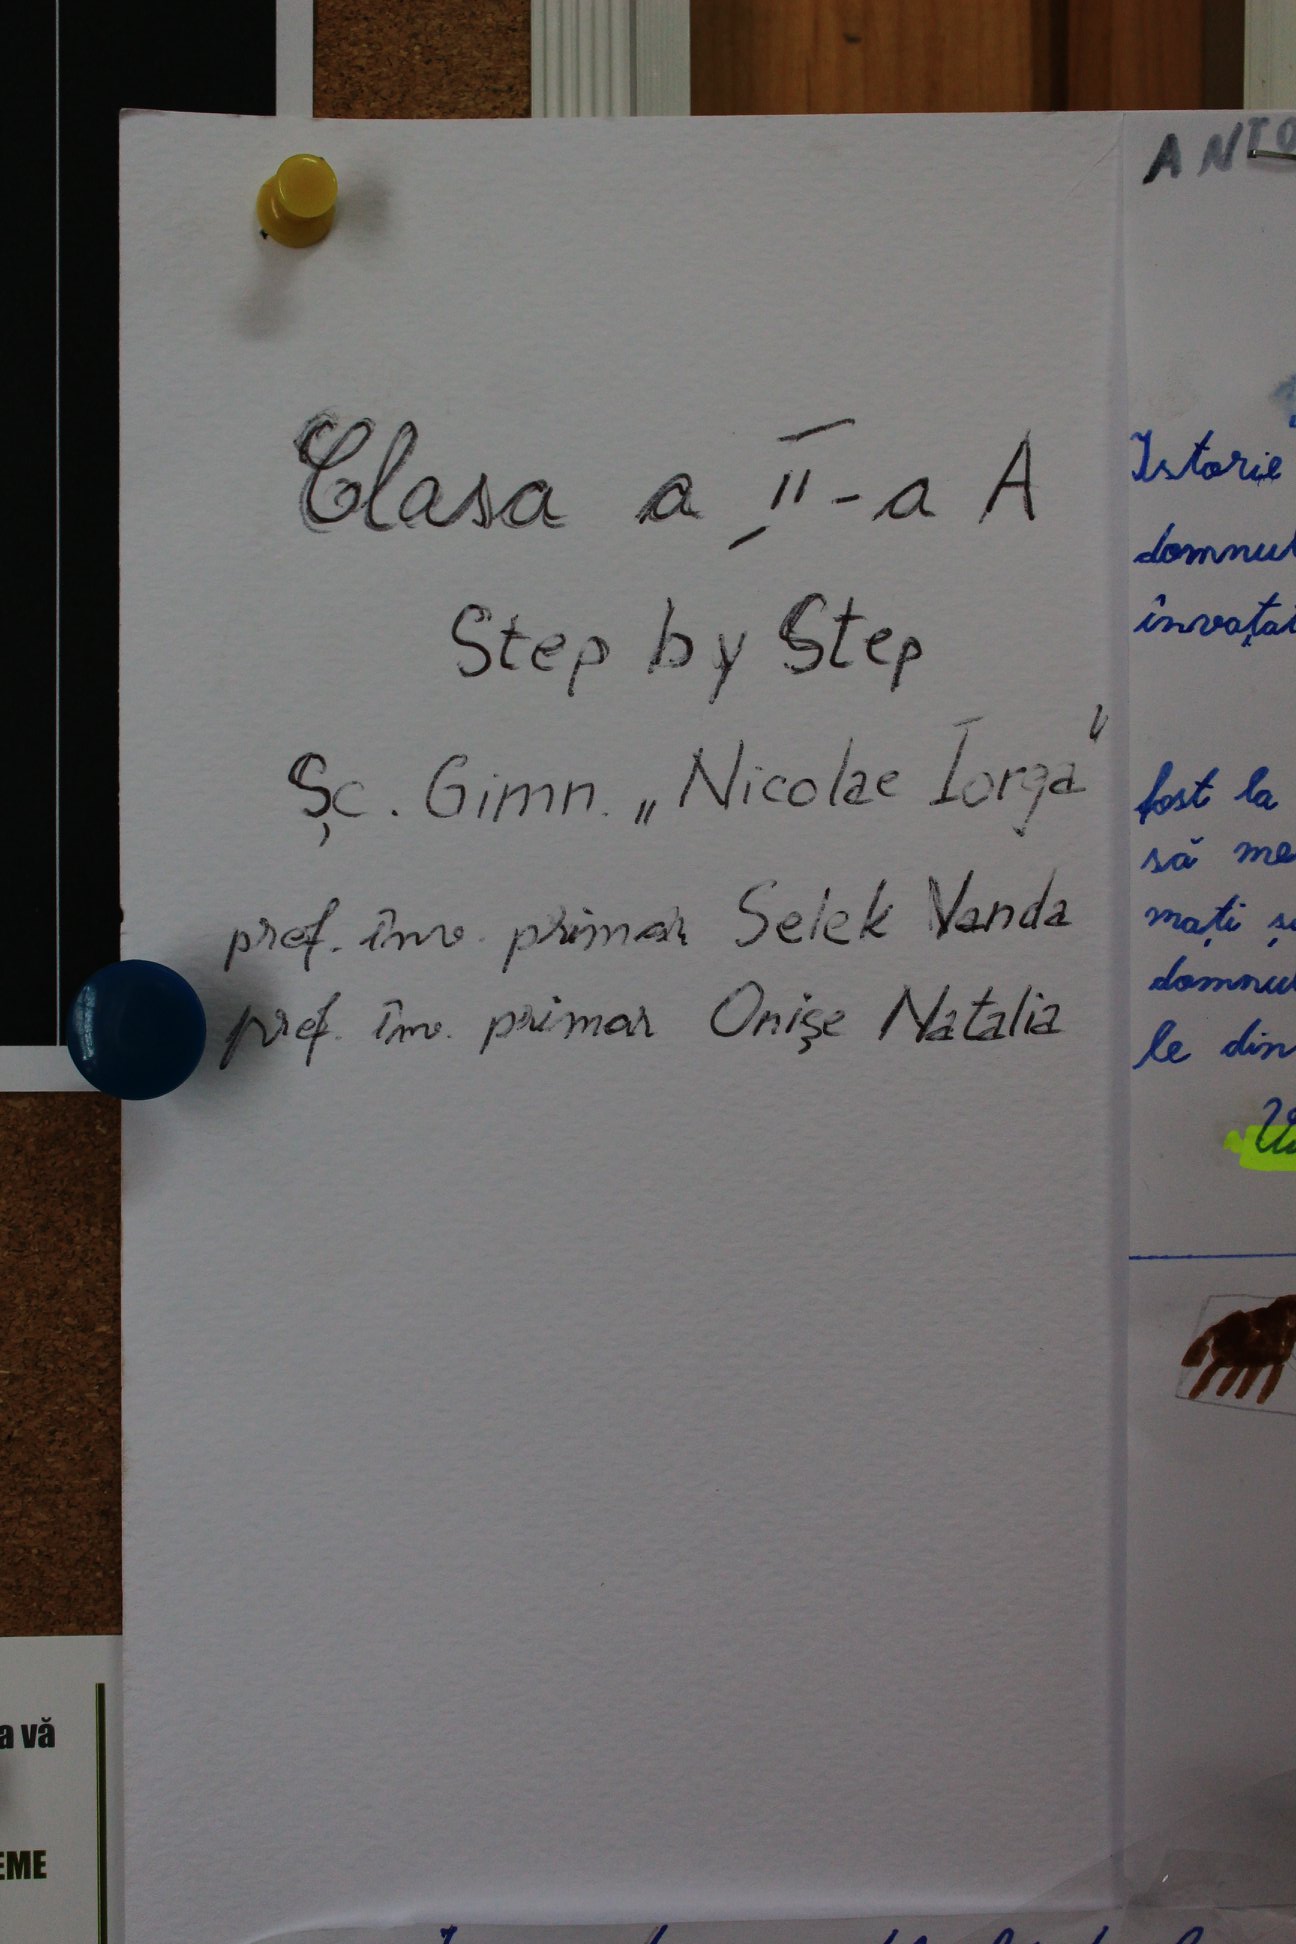 Clasa a II-a A
Step by Step
Șc. Gimn. „Nicolae Iorga"
pref. înv. primar Selek Vanda
pref. înv. primar Onișe Natalia
ANTO
Istorie
domnul
învațat
fost la
să me
mați și
domnul
le din
a vă
EME